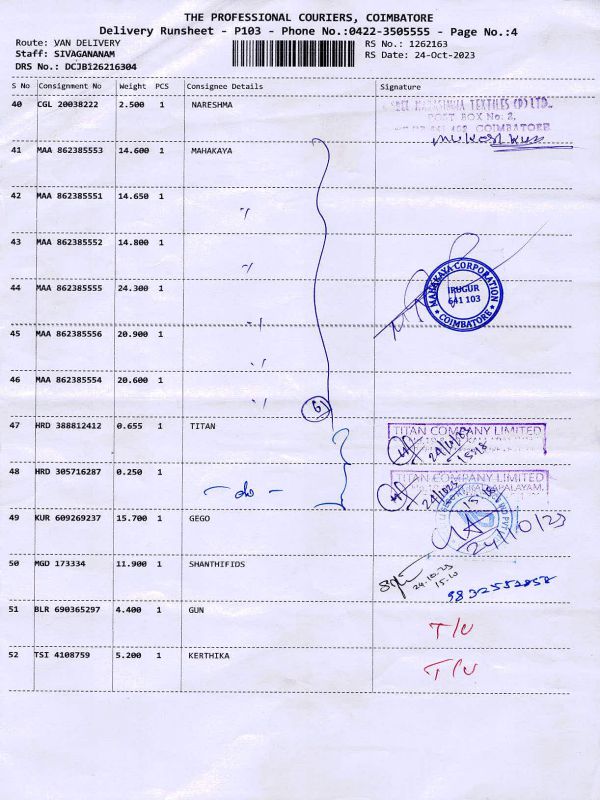 THE PROFESSIONAL COURIERS, COIMBATORE
Delivery Runsheet - P103 - Phone No.:0422-3505555 - Page No.:4
Route: VAN DELIVERY RS No.: 1262163
Staff: SIVAGANANAM RS Date: 24-Oct-2023
DRS No.: DCJB126216304
S No Consignment No Weight PCS Consignee Details Signature
40 CGL 20038222 2.500 1 NARESHMA
TEXTILES (P) LTD.,
POST BOX No. 2,
COIMBATORE
41 MAA 862385553 14.600 1 MAHAKAYA
42 MAA 862385551 14.650 1 〃
43 MAA 862385552 14.800 1 〃
44 MAA 862385555 24.300 1 〃
MAHAKAYA CORPORATION
IRUGUR
641 103
COIMBATORE
45 MAA 862385556 20.900 1 〃
46 MAA 862385554 20.600 1 〃
6
47 HRD 388812412 0.655 1 TITAN
TITAN COMPANY LIMITED
15:18
48 HRD 305716287 0.250 1 - do -
TITAN COMPANY LIMITED
49 KUR 609269237 15.700 1 GEGO
24/10/23
50 MGD 173334 11.900 1 SHANTHIFIDS
24.10.23
15.10
51 BLR 690365297 4.400 1 GUN
T/U
52 TSI 4108759 5.200 1 KERTHIKA
T/U